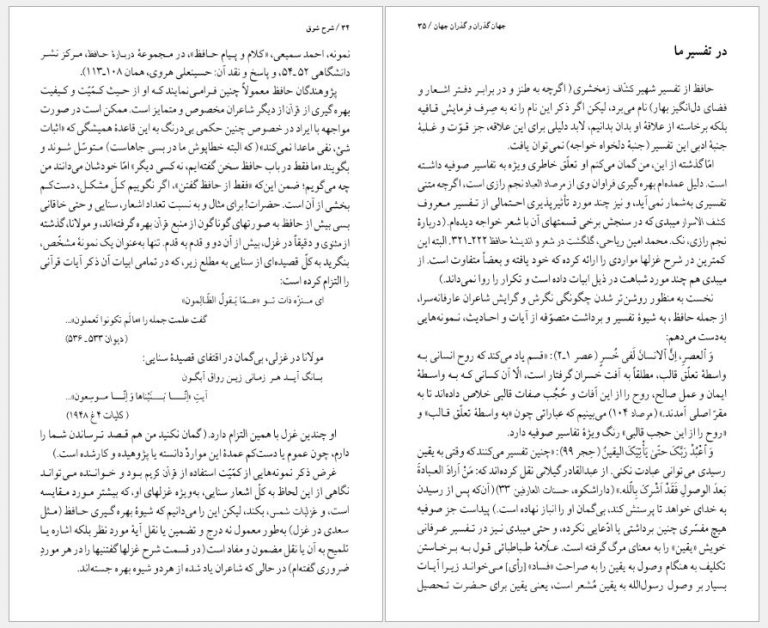 ۳۴ / شرح شوق
نمونه، احمد سمیعی، «کلام و پیام حافظ»، در مجموعهٔ دربارهٔ حافظ، مرکز نشر
دانشگاهی ۵۲ـ۵۴، و پاسخ و نقد آن: حسینعلی هروی، همان ۱۰۸ـ۱۱۳).
پژوهندگان حافظ معمولاً چنین فرامی‌نمایند که او از حیث کمّیّت و کیفیت
بهره‌گیری از قرآن از دیگر شاعران مخصوص و متمایز است. ممکن است در صورت
مواجهه با ایراد در خصوص چنین حکمی بی‌درنگ به این قاعدهٔ همیشگی که «اثبات
شئ، نفی ماعدا نمی‌کند» (که البته خطاپوش ما در بسی جاهاست) متوسّل شوند و
بگویند «ما فقط در باب حافظ سخن گفته‌ایم، نه کسی دیگر» امّا خودشان می‌دانند من
چه می‌گویم؛ ضمن این‌که «فقط از حافظ گفتن»، اگر نگوییم کلّ مشکل، دست‌کم
بخشی از آن است. حضرات! برای مثال و به نسبت تعداد اشعار، سنایی و حتی خاقانی
بسی بیش از حافظ به صورتهای گوناگون از منبع قرآن بهره گرفته‌اند، و مولانا، گذشته
از مثنوی و دقیقاً در غزل، بیش از آن دو و قدم به قدم. تنها به‌عنوان یک نمونهٔ مشخّص،
بنگرید به کلّ قصیده‌ای از سنایی به مطلع زیر، که در تمامی ابیات آن ذکر آیات قرآنی
را التزام کرده است:
ای منزّه ذات تو «عمّا یَقولُ الظّالِمون»
گفت علمت جمله را «مالَم تکونوا تَعملون»...
(دیوان ۵۳۳ـ۵۳۶)
مولانا در غزلی، بی‌گمان در اقتفای قصیدهٔ سنایی:
بانگ آیـد هـر زمـانی زیـن رواق آبگون
آیتِ «إنّـا بَـنَیْناها وَ إنّـا مـوسِعون»...
(کلیات ۴غ ۱۹۴۸)
او چندین غزل با همین التزام دارد. (گمان نکنید من هم قـصد تـرساندن شما را
دارم، چون عموم یا دست‌کم عمدهٔ این موارد دانسته یا پژوهیده و کارشده است.)
غرض ذکر نمونه‌هایی از کمّیت استفاده از قرآن کریم بود و خـواننده مـی‌توانـد
نگاهی از این لحاظ به کلّ اشعار سنایی، به‌ویژه غزلهای او، که بیشتر مورد مقایسه
است، و غزلیات شمس، بکند، لیکن این را می‌دانیم که شیوهٔ بهره‌گیری حافظ (مثل
سعدی در غزل) به‌طور معمول نه درج و تضمین یا نقل آیهٔ مورد نظر بلکه اشاره یا
تلمیح به آن یا نقل مضمون و مفاد است (در قسمت شرح غزلها گفتنیها را در هر موردِ
ضروری گفته‌ام) در حالی که شاعران یاد شده از هر دو شیوه بهره جسته‌اند.
جهان گذران و گذران جهان / ۳۵
در تفسیر ما
حافظ از تفسیر شهیر کشّاف زمخشری (اگرچه به طنز و در برابر دفتر اشعار و
فضای دل‌انگیز بهار) نام می‌برد، لیکن اگر ذکر این نام را نه به صِرف فرمایش قـافیه
بلکه برخاسته از علاقهٔ او بدان بدانیم، لابد دلیلی برای این علاقه، جز قـوّت و غـلبهٔ
جنبهٔ ادبی این تفسیر (جنبهٔ دلخواه خواجه) نمی‌توان یافت.
امّا گذشته از این، من گمان می‌کنم او تعلّق خاطری ویژه به تفاسیر صوفیه داشته
است. دلیل عمده‌ام بهره‌گیری فراوان وی از مرصاد العباد نجم رازی است، اگرچه متنی
تفسیری به‌شمار نمی‌آید، و نیز چند مورد تأثیرپذیری احتمالی از تـفسیر مـعروف
کشف الاسرار میبدی که در سنجش برخی قسمتهای آن با شعر خواجه دیده‌ام. (دربارهٔ
نجم رازی، نک. محمد امین ریاحی، گلگشت در شعر و اندیشهٔ حافظ ۲۲۲ـ۳۲۱. البته این
کمترین در شرح غزلها مواردی را ارائه کرده که خود یافته و بعضاً متفاوت است. از
میبدی هم چند مورد شباهت در ذیل ابیات داده است و تکرار را روا نمی‌داند.)
نخست به منظور روشن‌تر شدن چگونگی نگرش و گرایش شاعران عارفانه‌سرا،
از جمله حافظ، به شیوهٔ تفسیر و برداشت متصوّفه از آیات و احـادیث، نـمونه‌هایی
به‌دست می‌دهم:
وَ ٱلعصرِ، إنَّ ٱلانسانَ لَفی خُسرٍ (عصر ۱ـ۲): «قسم یاد می‌کند که روح انسانی به
واسطهٔ تعلّق قالب، مطلقاً به آفت خسران گرفتار است، الّا آن کسانی کـه بـه واسـطهٔ
ایمان و عمل صالح، روح را از این آفات و حُجُب صفات قالبی خلاص داده‌اند تا به
مقرّ اصلی آمدند.» (مرصاد ۱۰۴) می‌بینیم که عباراتی چون «به واسطهٔ تعلّق قـالب» و
«روح را از این حجب قالبی» رنگ ویژهٔ تفاسیر صوفیه دارد.
وَ ٱعْبُدْ رَبَّکَ حتّیٰ یَأْتِیَکَ الیَقینُ (حِجر ۹۹): «چنین تفسیر می‌کنند که وقتی به یقین
رسیدی می‌توانی عبادت نکنی. از عبدالقادر گیلانی نقل کرده‌اند که: مَنْ اَرادَ العبادةَ
بَعدَ الوصولِ فَقَدْ أشَرکَ بِاللّٰه.» (داراشکوه، حسنات العارفین ۳۳) (آن‌که پس از رسیدن
به خدای خواهد تا پرستش کند، بی‌گمان او را انباز نهاده است.) پیداست جز صوفیه
هیچ مفسّری چنین برداشتی یا ادّعایی نکرده، و حتی میبدی نیز در تفسیر عـرفانی
خویش «یقین» را به معنای مرگ گرفته است. علّامهٔ طباطبائی قـول بـه بـرخاستن
تکلیف به هنگام وصول به یقین را به صراحت «فساد» [رأی] مـی‌خواند زیـرا آیـات
بسیار بر وصول رسول‌الله به یقین مُشعر است، یعنی یقین برای حضرت تـحصیل